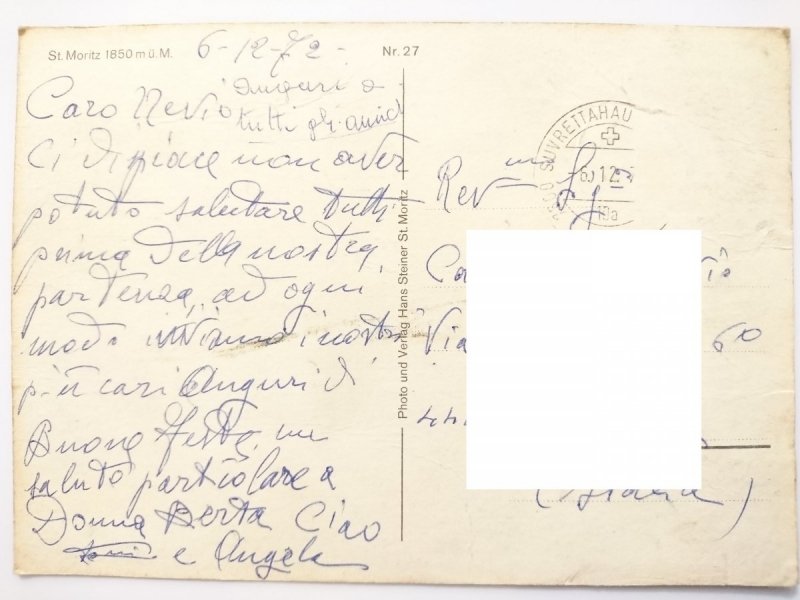 St. Moritz 1850 m ü. M.
6-12-72-
Nr. 27
Caro Nevio
auguri a
tutti gli amici
Ci dispiace non aver
potuto salutare tutti
prima della nostra
partenza, ad ogni
modo inviamo i nostri
più cari Auguri di
Buone feste, un
saluto particolare a
Donna Berta Ciao
e Angela
Photo und Verlag Hans Steiner St. Moritz
SUVRETTAHAU
6.12.
Rev mo
Ca
Via 60
44
(Italia)